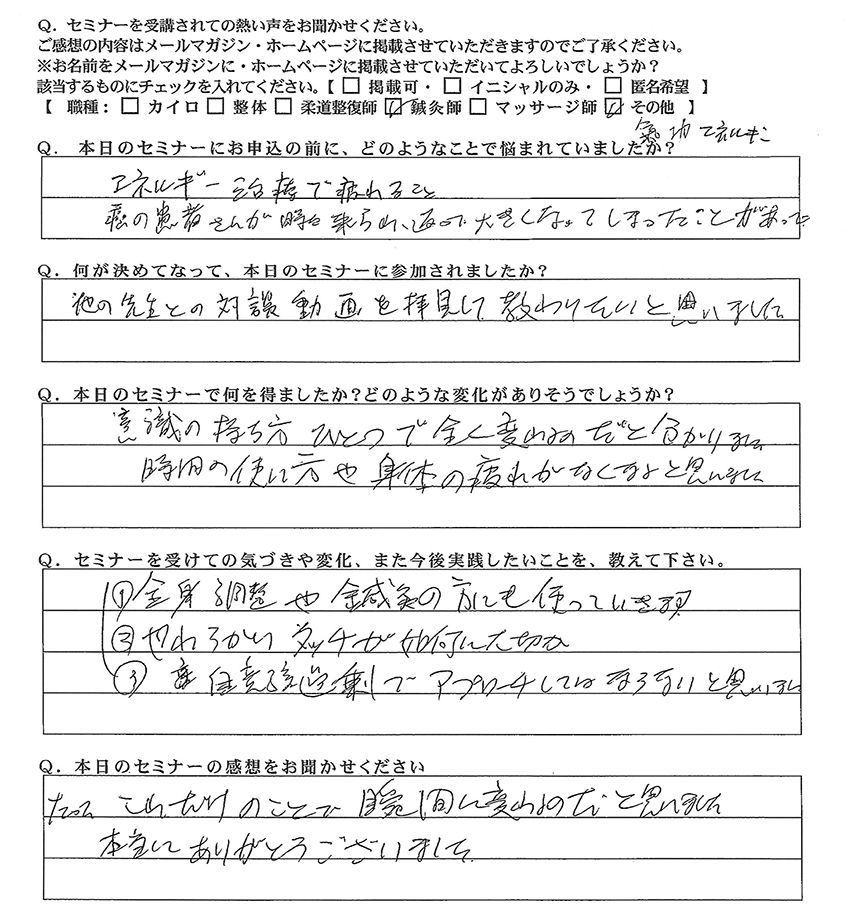 Q. セミナーを受講されての熱い声をお聞かせください。
ご感想の内容はメールマガジン・ホームページに掲載させていただきますのでご了承ください。
※お名前をメールマガジンに・ホームページに掲載させていただいてよろしいでしょうか？
該当するものにチェックを入れてください。【 □ 掲載可・ □ イニシャルのみ・ □ 匿名希望 】
【 職種： □ カイロ □ 整体 □ 柔道整復師 ☑ 鍼灸師 □ マッサージ師 ☑ その他 】
気功 エネルギー
Q. 本日のセミナーにお申込の前に、どのようなことで悩まれていましたか？
エネルギー治療で疲れること
癌の患者さんが時々来られ、返って大きくなってしまったことがあって
Q. 何が決めてなって、本日のセミナーに参加されましたか？
他の先生との対談動画を拝見して教わりたいと思いました
Q. 本日のセミナーで何を得ましたか？どのような変化がありそうでしょうか？
意識の持ち方ひとつで全く変わるのだと分かりました
時間の使い方や身体の疲れがなくなると思いました
Q. セミナーを受けての気づきや変化、また今後実践したいことを、教えて下さい。
① 全身調整や鍼灸の方にも使っていきます
② やわらかいタッチが如何に大切か
③ 意識過剰でアプローチしてはならないと思いました
Q. 本日のセミナーの感想をお聞かせください
たったこれだけのことで瞬間に変わるのだと思いました
本当にありがとうございました